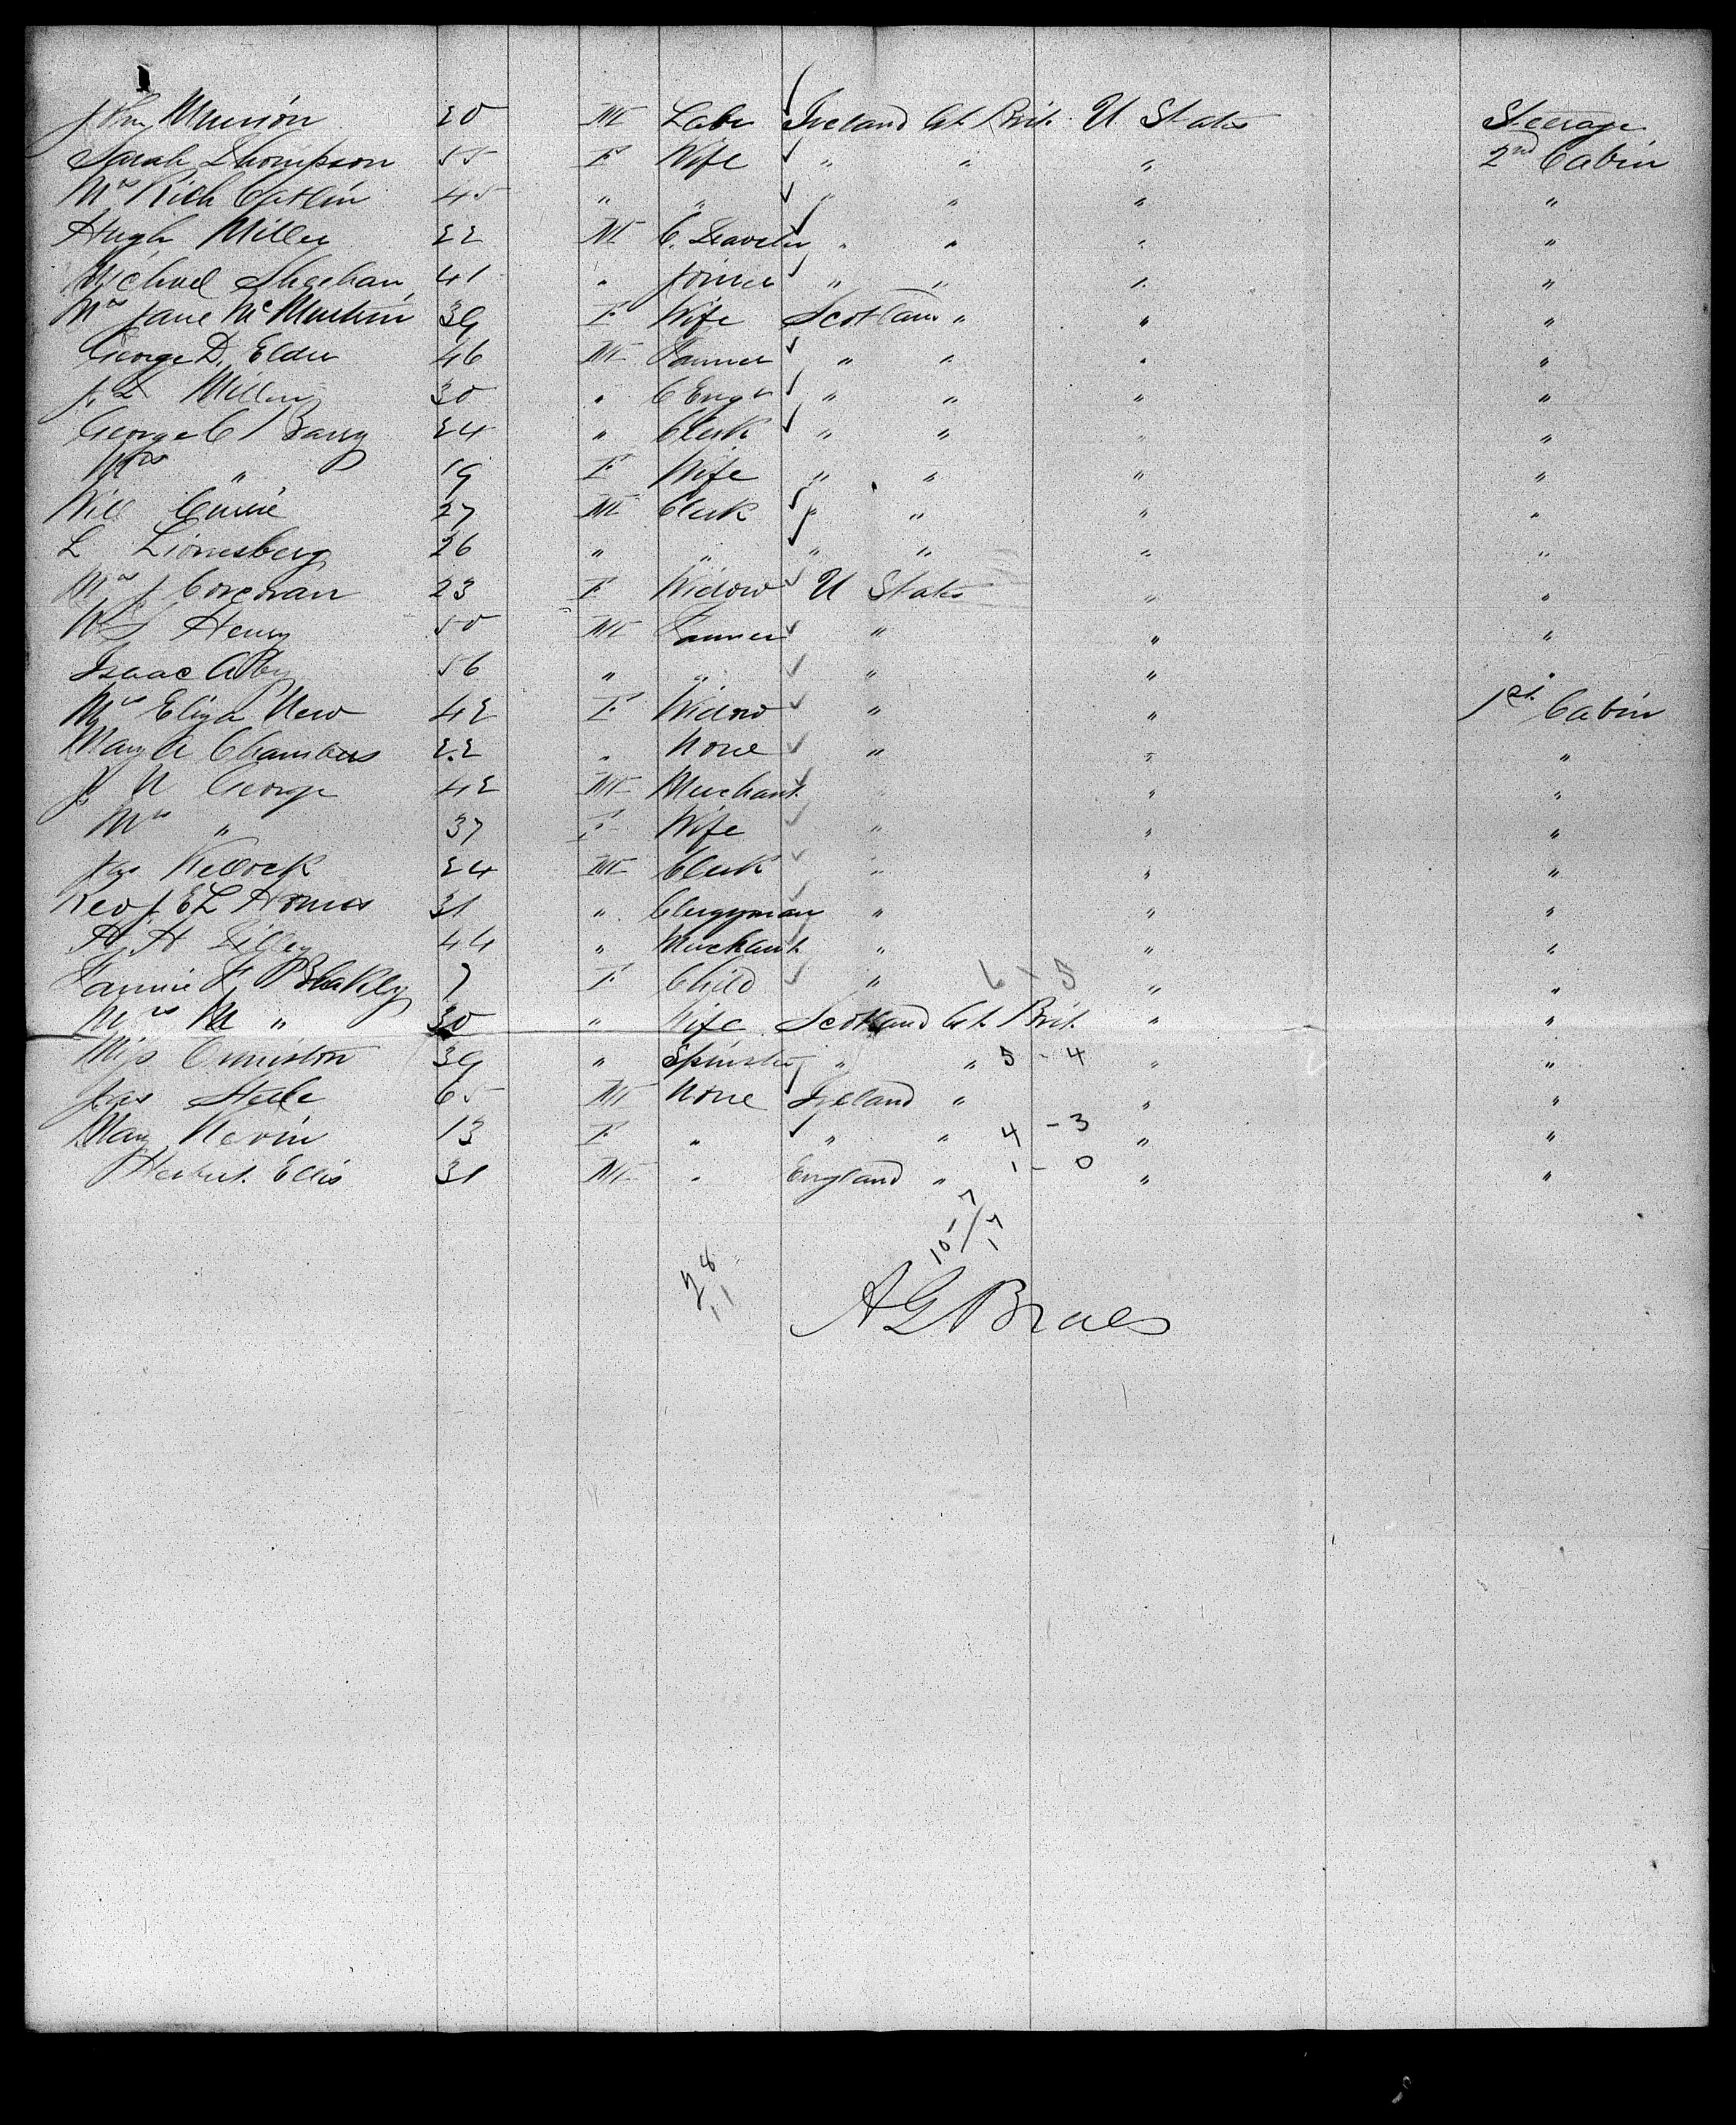 John Munion 20 M Labr Ireland Gt. Brit. U States Steerage
Sarah Thompson 55 F Wife " " " 2nd Cabin
Mrs Rich Catlin 45 " " " " " "
Hugh Miller 22 M C. Traveler " " " "
Michael Sheehan 41 " Joiner " " " "
Mrs Jane McMurtrin 39 F Wife Scotland " " "
George D. Elder 46 M Farmer " " " "
J. L Miller 30 " C Engr " " " "
George C Barry 24 " Clerk " " " "
Mrs " 19 F Wife " " " "
Will Currie 27 M Clerk " " " "
L Lionesberg 26 " " " " " "
Mrs J Corcoran 23 F Widow U States " "
W S Henry 50 M Farmer " " "
Isaac Alby 56 " " " " "
Mrs Eliza New 42 F Widow " " 1st Cabin
Mary A Chambers 22 " None " " "
J. N George 42 M Merchant " " "
Mrs " 37 F Wife " " "
Jas Kellock 24 M Clerk " " "
Rev J E L Homes 31 " Clergyman " " "
H. H Lilley 44 " Merchant " " "
Fannie F Blakley 7 F Child " 6 - 5 " "
Mrs M " 30 " Wife Scotland Gt. Brit. " "
Miss Ormiston 39 " Spinster " " 5 - 4 " "
Jas Steele 65 M None Ireland " " "
Mary Nevin 13 F " " " 4 - 3 " "
Herbert Ellis 31 M " England " 1 - 0 " "
28
11
10 / 17
17
A G Braes